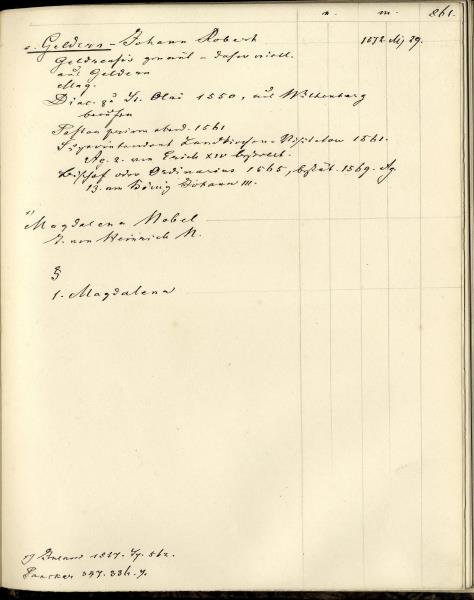 n. m. 861.
v. Geldern - Johann Robert 1572 Mz 29.
Geldrensis genant - daher viell.
aus Geldern
Mag.
Diac. zu St. Olai 1550, aus Wittenberg
berufen
Pastor primarius 1561
Superintendent Landkirchen-Visitator 1561.
Ag. 2. von Erich XIV bestellt.
Bischof oder Ordinarius 1565, bestät. 1569. Ag
13. von König Johann III.
Magdalena Nobel
T. von Heinrich N.
§
1. Magdalena
Inland 1837. Sp. 562.
Paucker 347. 334.